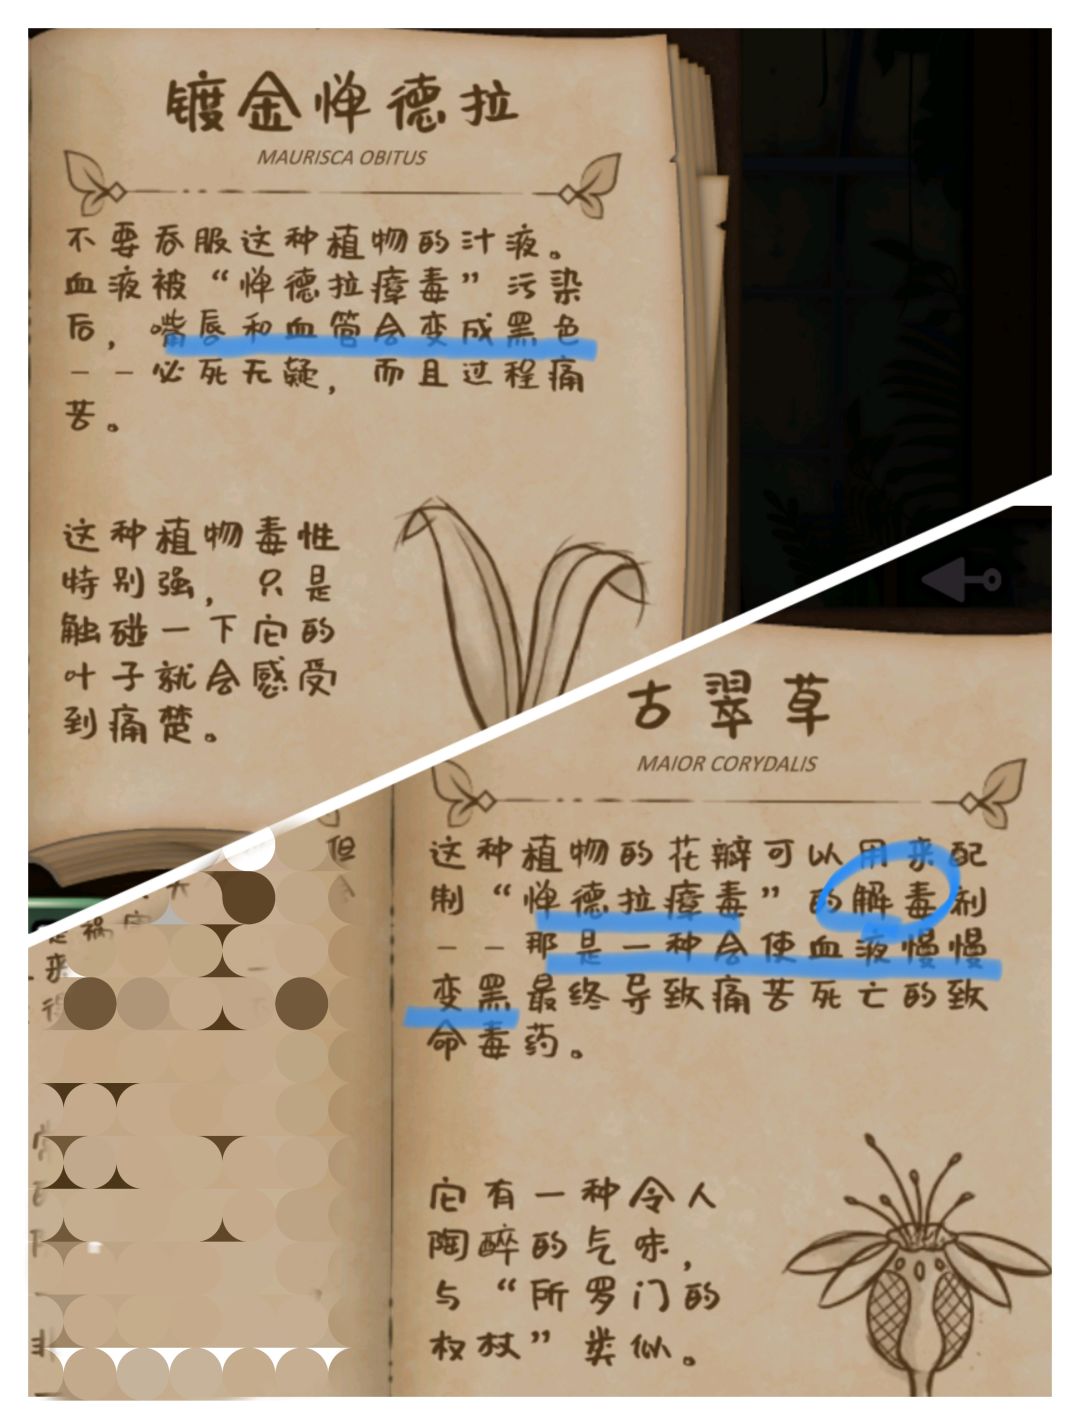 镀金惮德拉
MAURISCA OBITUS
不要吞服这种植物的汁液。
血液被“惮德拉瘴毒”污染
后，嘴唇和血管会变成黑色
－－必死无疑，而且过程痛
苦。
这种植物毒性
特别强，只是
触碰一下它的
叶子就会感受
到痛楚。
古翠草
MAIOR CORYDALIS
这种植物的花瓣可以用来配
制“惮德拉瘴毒”的解毒剂
－－那是一种会使血液慢慢
变黑最终导致痛苦死亡的致
命毒药。
它有一种令人
陶醉的气味，
与“所罗门的
权杖”类似。
但